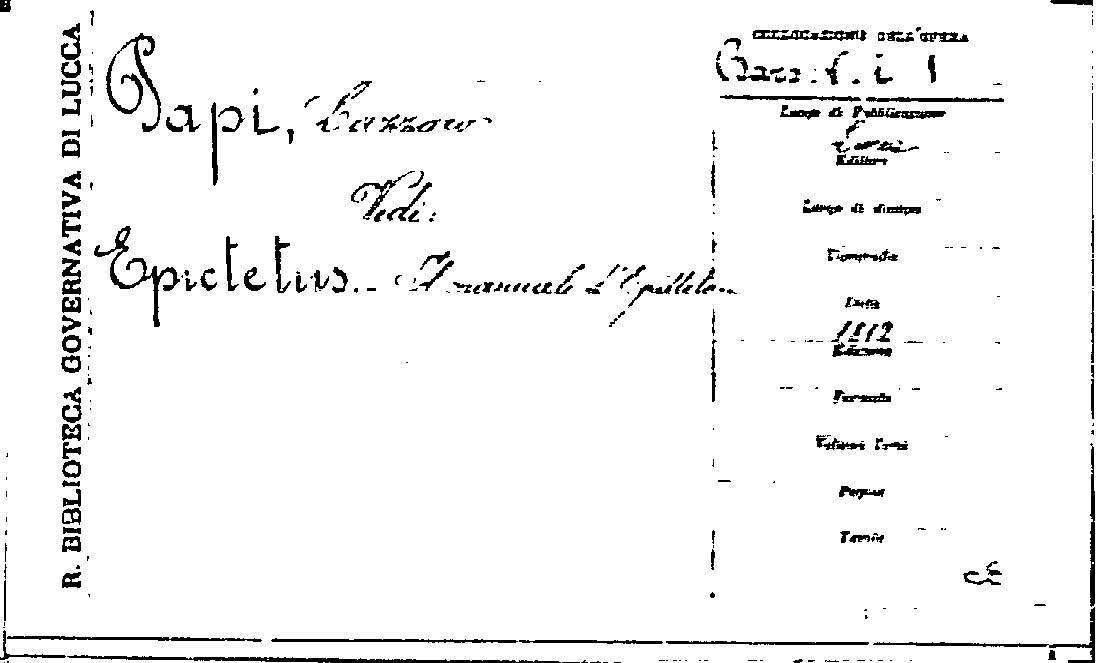 R. BIBLIOTECA GOVERNATIVA DI LUCCA
Papi, Lazzaro
Vedi:
Epictetus.. Il manuale d'Epitteto
COLLOCAZIONE DELL'OPERA
Luogo di Pubblicazione
Editore
Luogo di stampa
Tipografia
Data
1812
Edizione
Formato
Volumi Tomi
Pagine
Tavole